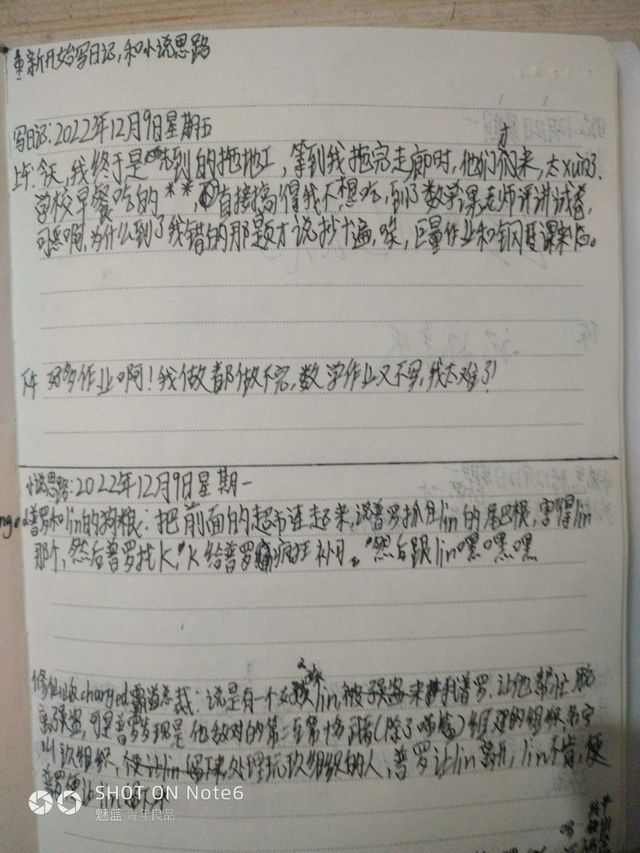 重新开始写日记,和小说思路
写日记:2022年12月9日星期五
上午:今天,我终于是先到的拖地工,等到我拖完走廊时,他们才来,太xu了。
学校早餐吃的**,直接搞得我不想吃,到了数学课老师评讲试卷,
可恶啊,为什么到了我错的那题才说抄十遍,唉,巨量作业和课来临。
下午 好多作业啊!我做都做不完,数学作业又不写,我太难了!
小说思路:2022年12月9日星期一
普罗和lin的狗粮:把前面的起来,说普罗抓住lin的尾巴根,害得lin
那个,然后普罗找K,K给普罗疯狂补习。然后跟lin嘿嘿嘿
修仙版charged霸道总裁:说是有一个lin被强盗来找普罗.让他帮忙脱
离强盗,可是普罗发现是他敌对的第二至第十(除了)组建的组织,名字
叫玖组织,处理玩玖组织的人,普罗让lin离开,lin不肯,便
普罗便让lin留下
SHOT ON Note6
魅蓝 青年良品